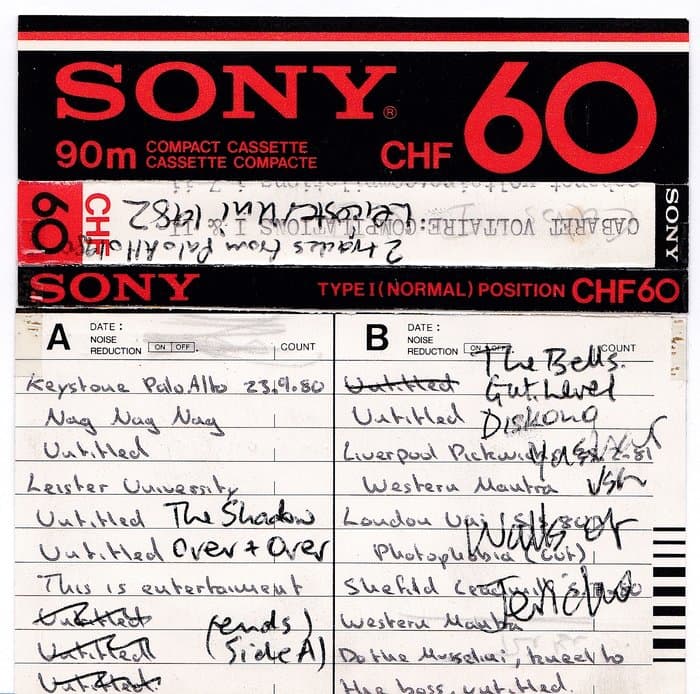 SONY®
60
90m COMPACT CASSETTE
CASSETTE COMPACTE
CHF
CHF
60
CABARET VOLTAIRE: COMPILATIONS I & II
Leicester Uni 1982
2 tracks from Palo Alto
SONY
SONY
TYPE I (NORMAL) POSITION CHF60
A
DATE:
NOISE
REDUCTION ON OFF
COUNT
Keystone Palo Alto 23.9.80
Nag Nag Nag
Untitled
Leister University
Untitled The Shadow
Untitled Over + Over
This is entertainment
Untitled
(ends)
Untitled
Side A)
Untitled
B
DATE:
NOISE
REDUCTION ON OFF
COUNT
The Bells.
Untitled Gut Level
Untitled Diskono
Liverpool Pickwicks
Western Mantra
London Uni
Walls of
Photophobia (cut)
Jericho
Western Mantra
Do the Mussolini, kneel to
the boss, untitled